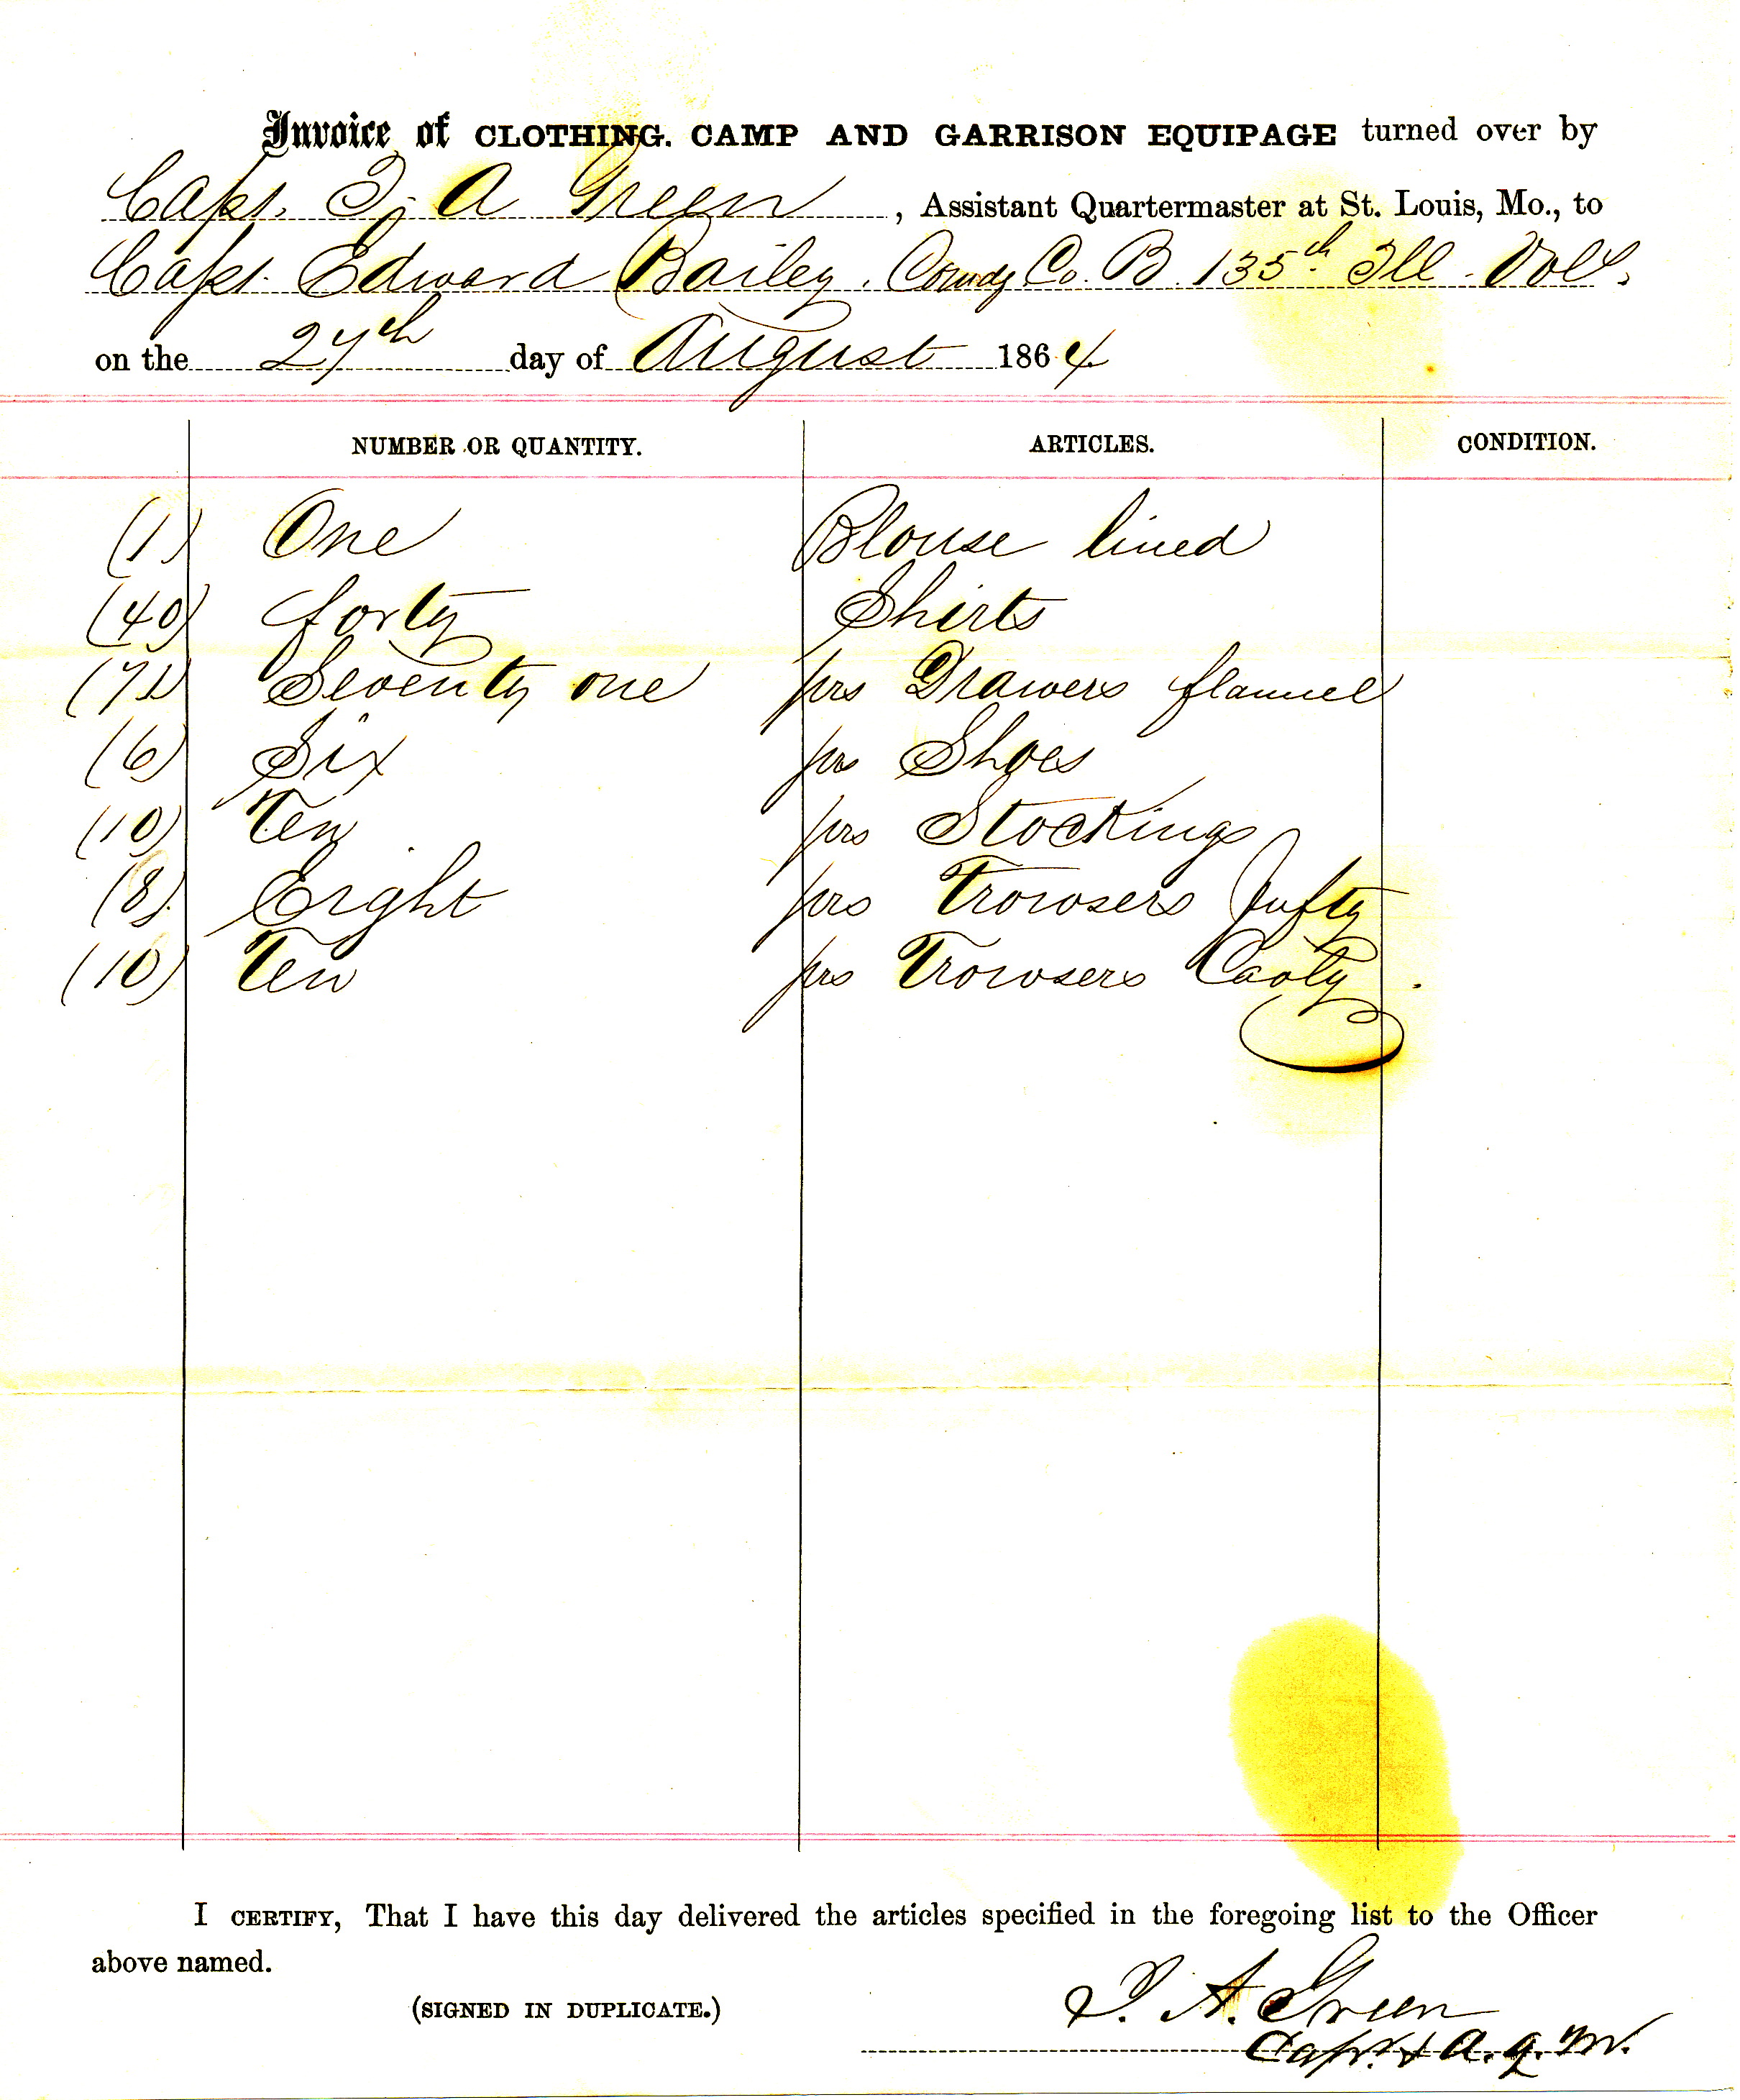 Invoice of CLOTHING. CAMP AND GARRISON EQUIPAGE turned over by
Capt. I. A Green, Assistant Quartermaster at St. Louis, Mo., to
Capt. Edward Bailey. Comdg Co. B. 135th Ill. Vols.
on the 27th day of August 1864
NUMBER OR QUANTITY. ARTICLES. CONDITION.
(1) One Blouse lined
(40) forty Shirts
(71) Seventy one prs Drawers flannel
(6) Six prs Shoes
(10) Ten prs Stockings
(8) Eight prs Trowsers Infty
(10) Ten prs Trowsers Cavly.
I CERTIFY, That I have this day delivered the articles specified in the foregoing list to the Officer
above named.
(SIGNED IN DUPLICATE.) I. A. Green
Capt. & A. Q. M.